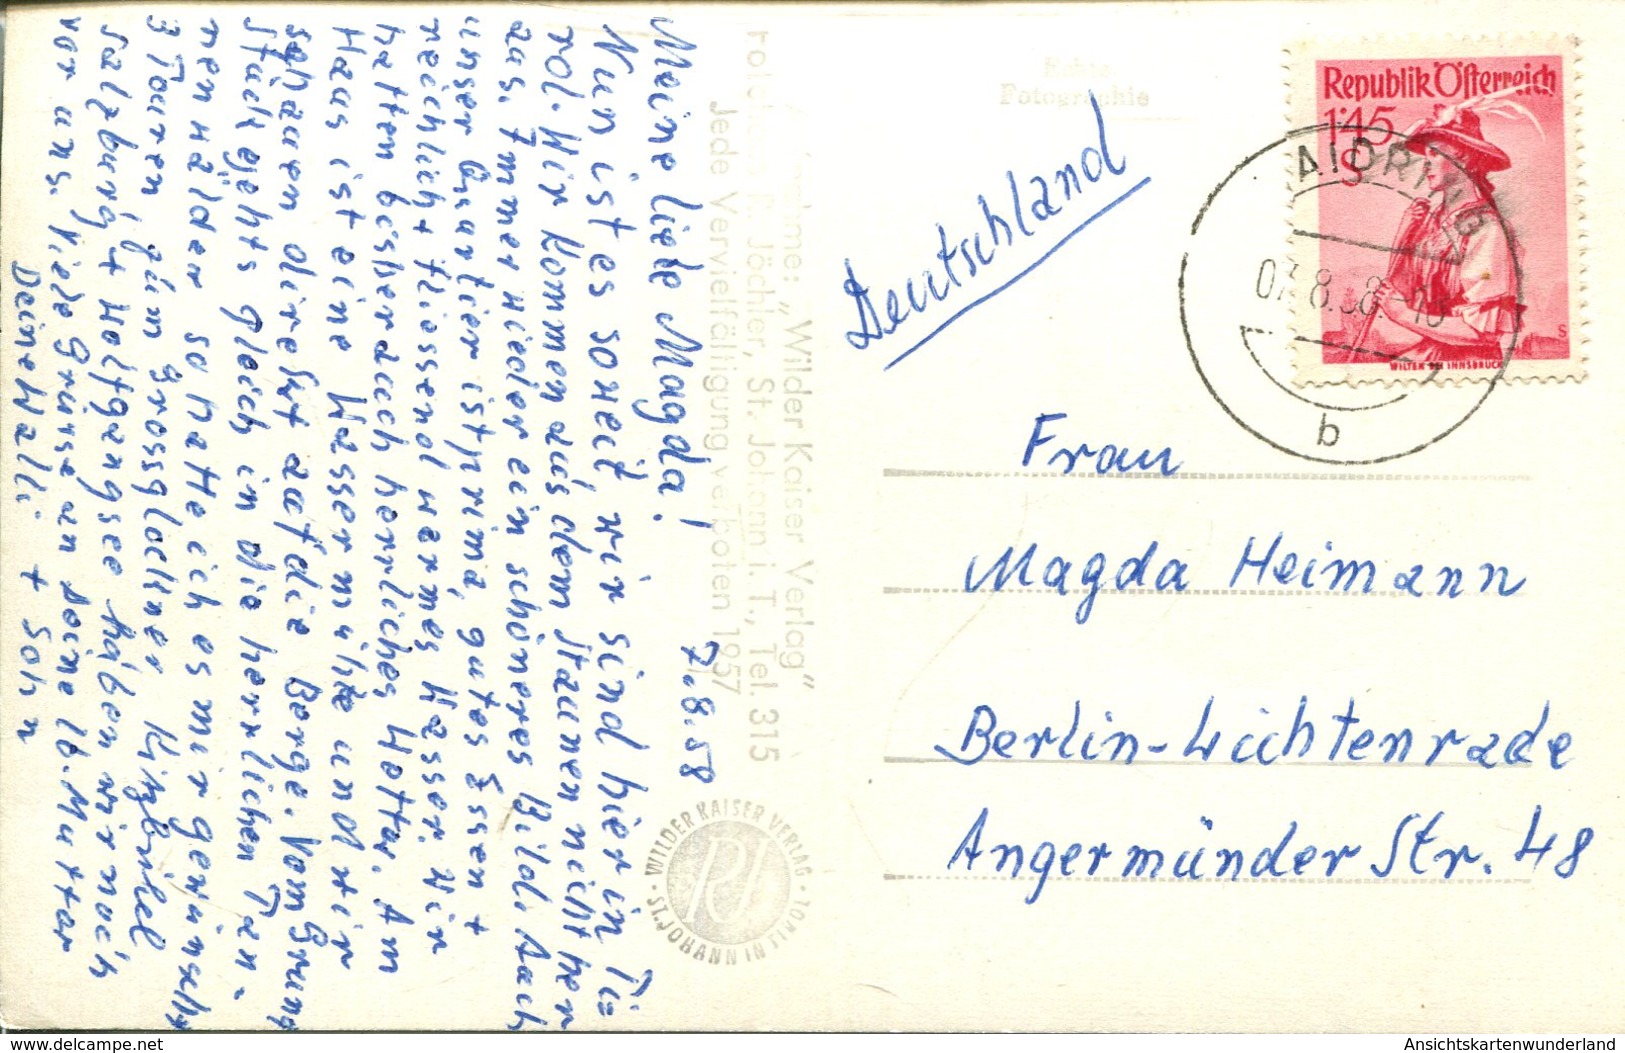 7.8.58
Meine liebe Magda!
Nun ist es soweit, wir sind hier in Ti=
rol. Wir kommen aus dem staunen nicht her
aus. Immer wieder ein schöneres Bild. Auch
unser Quartier ist prima, gutes Essen +
reichlich + fliessend warmes Wasser. Wir
hatten bisher auch herrliches Wetter. Am
Haus ist eine Wassermühle und wir
schauen direkt auf die Berge. Vom Grund
stück gehts gleich in die herrlichen Tan-
nenwälder so hatte ich es mir gewünscht
3 Touren zum Grossglockner Kitzbühel
Salzburg + Wolfgangsee haben wir noch
vor uns. Viele Grüsse an Deine lb. Mutter
Deine Walli + Sohn
Aufnahme: „Wilder Kaiser Verlag“
Jöchler, St. Johann i. T., Tel. 315
Jede Vervielfältigung verboten 1957
WILDER KAISER VERLAG
ST. JOHANN IN TIROL
Echte
Fotographie
Deutschland
Republik Österreich
1'45
S
WILTEN BEI INNSBRUCK
AIDRING
b
Frau
Magda Heimann
Berlin-Lichtenrade
Angermünder Str. 48
www.delcampe.net
Ansichtskartenwunderland